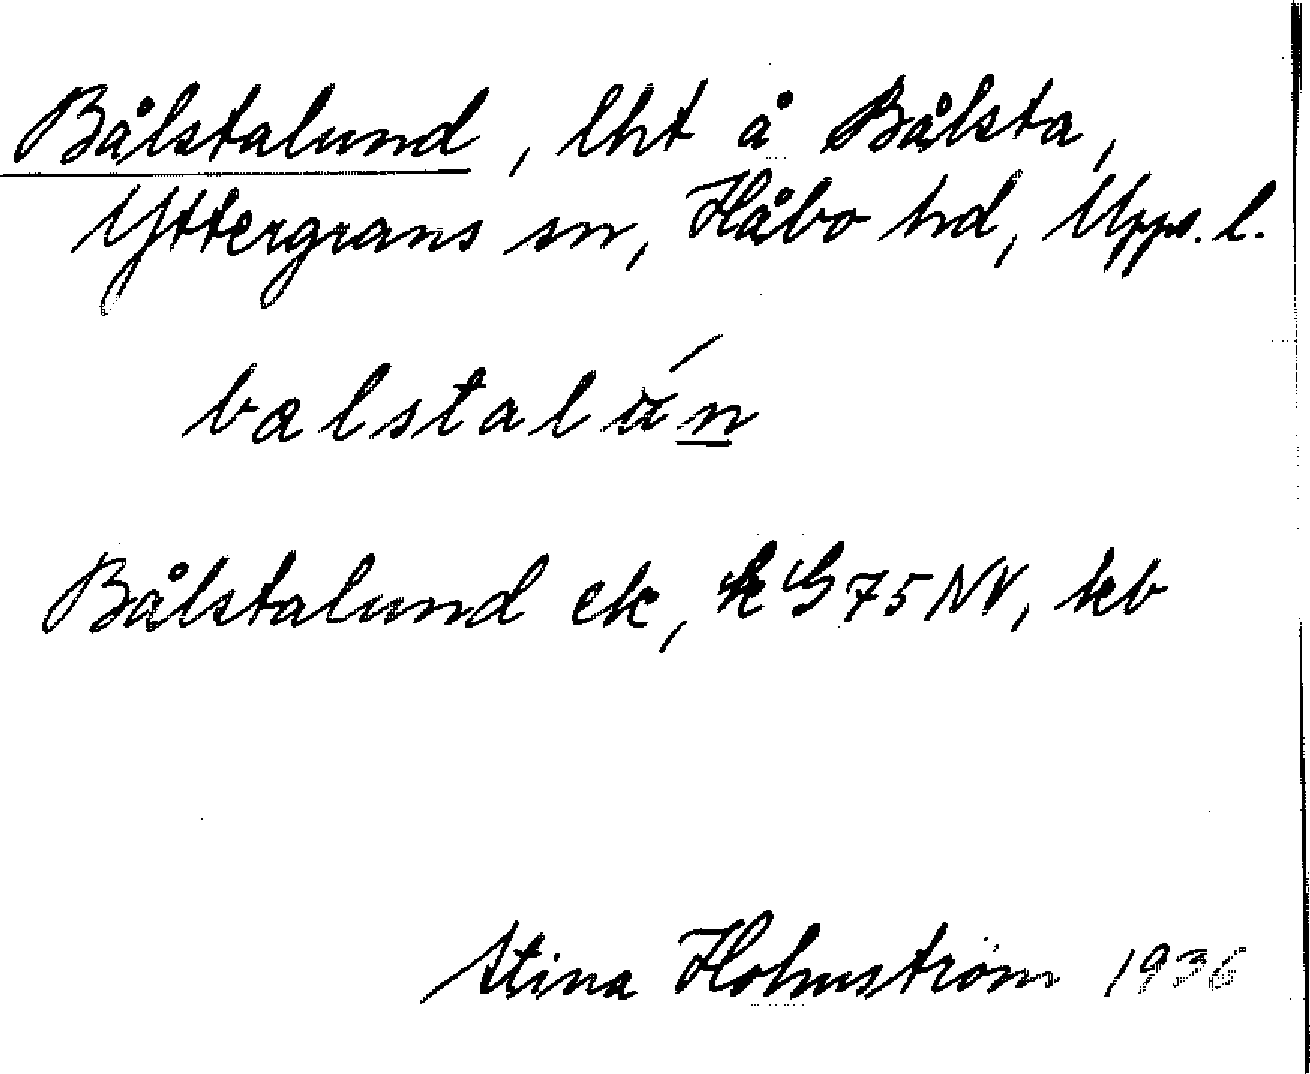 Bålstalund, lht å Bålsta,
Yttergrans sn, Håbo hd, Upps. l.
Bålstalund ek, G 75 NV, kb
Stina Holmström 1936